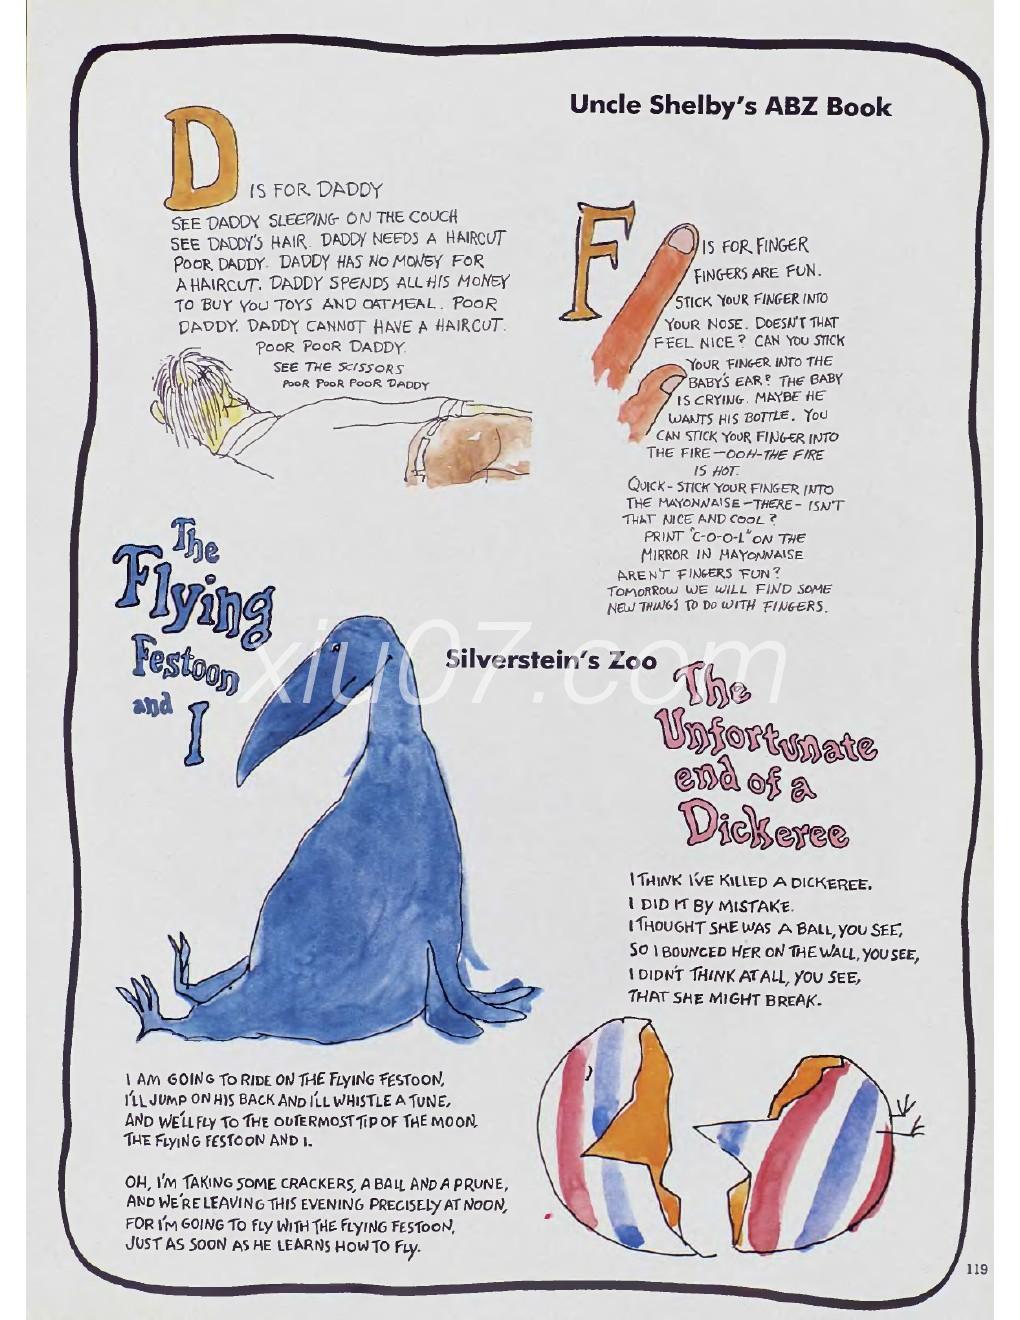 Uncle Shelby's ABZ Book
D IS FOR DADDY
SEE DADDY SLEEPING ON THE COUCH
SEE DADDY'S HAIR. DADDY NEEDS A HAIRCUT
POOR DADDY. DADDY HAS NO MONEY FOR
A HAIRCUT. DADDY SPENDS ALL HIS MONEY
TO BUY YOU TOYS AND OATMEAL. POOR
DADDY. DADDY CANNOT HAVE A HAIRCUT.
POOR POOR DADDY.
SEE THE SCISSORS
POOR POOR POOR DADDY
F IS FOR FINGER
FINGERS ARE FUN.
STICK YOUR FINGER INTO
YOUR NOSE. DOESN'T THAT
FEEL NICE? CAN YOU STICK
YOUR FINGER INTO THE
BABY'S EAR? THE BABY
IS CRYING. MAYBE HE
WANTS HIS BOTTLE. YOU
CAN STICK YOUR FINGER INTO
THE FIRE—OOH—THE FIRE
IS HOT.
QUICK - STICK YOUR FINGER INTO
THE MAYONNAISE—THERE—ISN'T
THAT NICE AND COOL?
PRINT "C-O-O-L" ON THE
MIRROR IN MAYONNAISE
AREN'T FINGERS FUN?
TOMORROW WE WILL FIND SOME
NEW THINGS TO DO WITH FINGERS.
Silverstein's Zoo
The
Flying
Festoon
and I
I AM GOING TO RIDE ON THE FLYING FESTOON,
I'LL JUMP ON HIS BACK AND I'LL WHISTLE A TUNE,
AND WE'LL FLY TO THE OUTERMOST TIP OF THE MOON,
THE FLYING FESTOON AND I.
OH, I'M TAKING SOME CRACKERS, A BALL AND A PRUNE,
AND WE'RE LEAVING THIS EVENING PRECISELY AT NOON,
FOR I'M GOING TO FLY WITH THE FLYING FESTOON,
JUST AS SOON AS HE LEARNS HOW TO FLY.
The
Unfortunate
end of a
Dickeree
I THINK I'VE KILLED A DICKEREE.
I DID IT BY MISTAKE.
I THOUGHT SHE WAS A BALL, YOU SEE,
SO I BOUNCED HER ON THE WALL, YOU SEE,
I DIDN'T THINK AT ALL, YOU SEE,
THAT SHE MIGHT BREAK.
119
xiu07.com